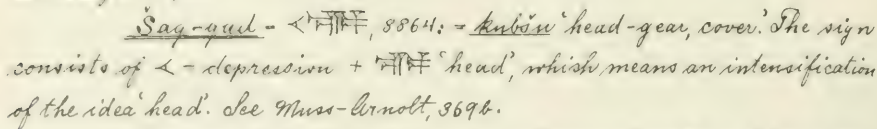 Šag-gud - 𒌋𒊕, 8864: = kubšu 'head-gear, cover'. The sign
consists of 𒌋 - depression + 𒊕 'head', which means an intensification
of the idea 'head'. See Muss-Arnolt, 369b.